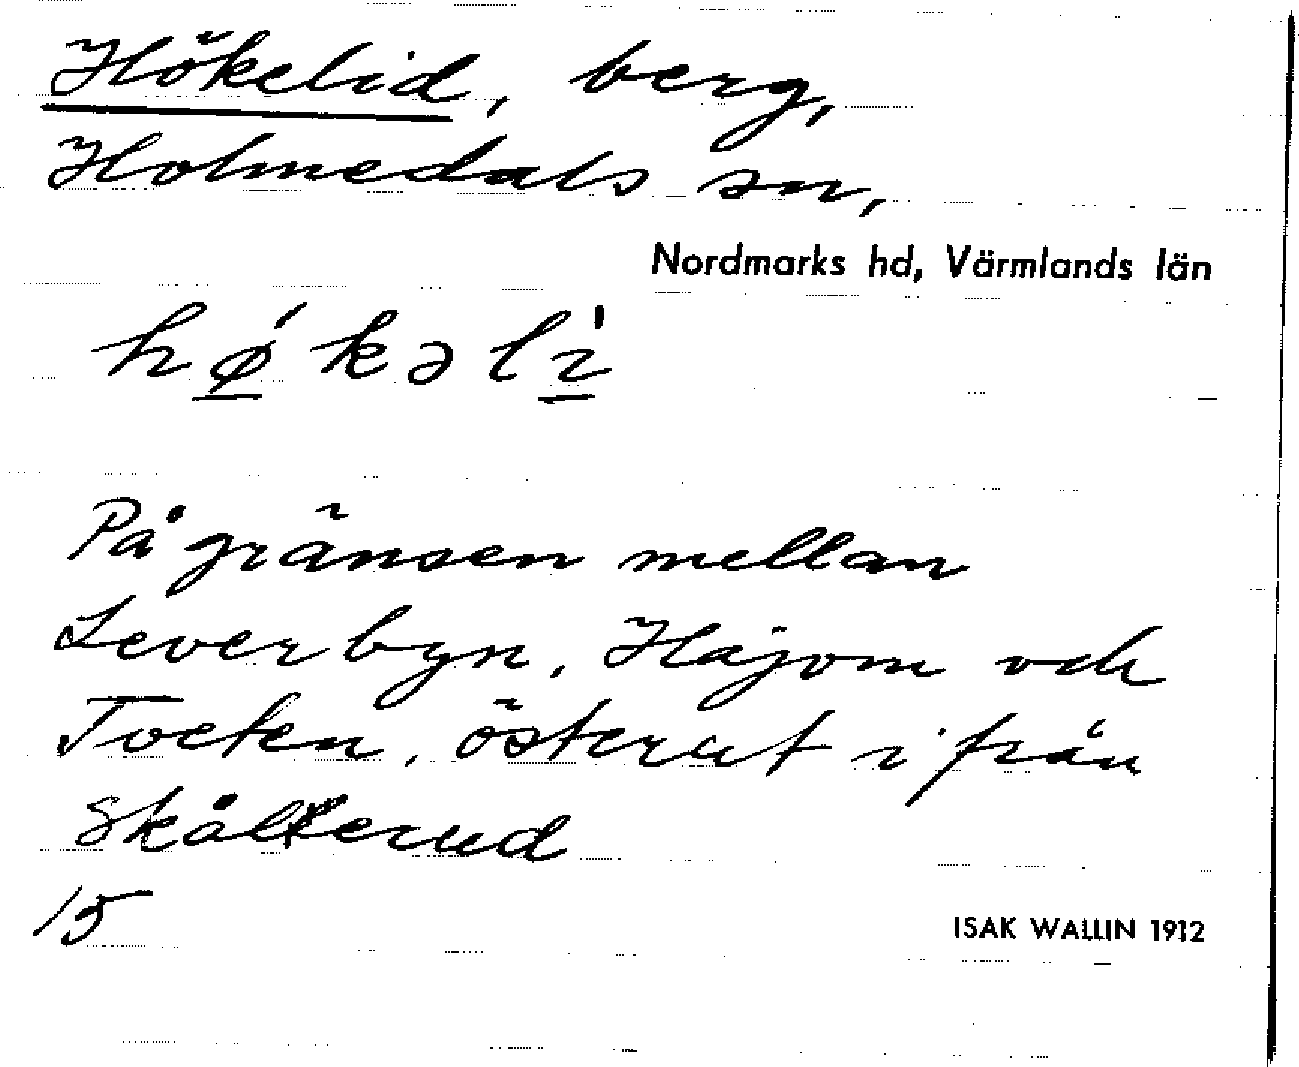 Hökelid, berg,
Holmedals sn,
Nordmarks hd, Värmlands län
hǿkəlì
På gränsen mellan
Leverbyn, Håjom och
Tveten, österut ifrån
Skållerud
15
ISAK WALLIN 1912